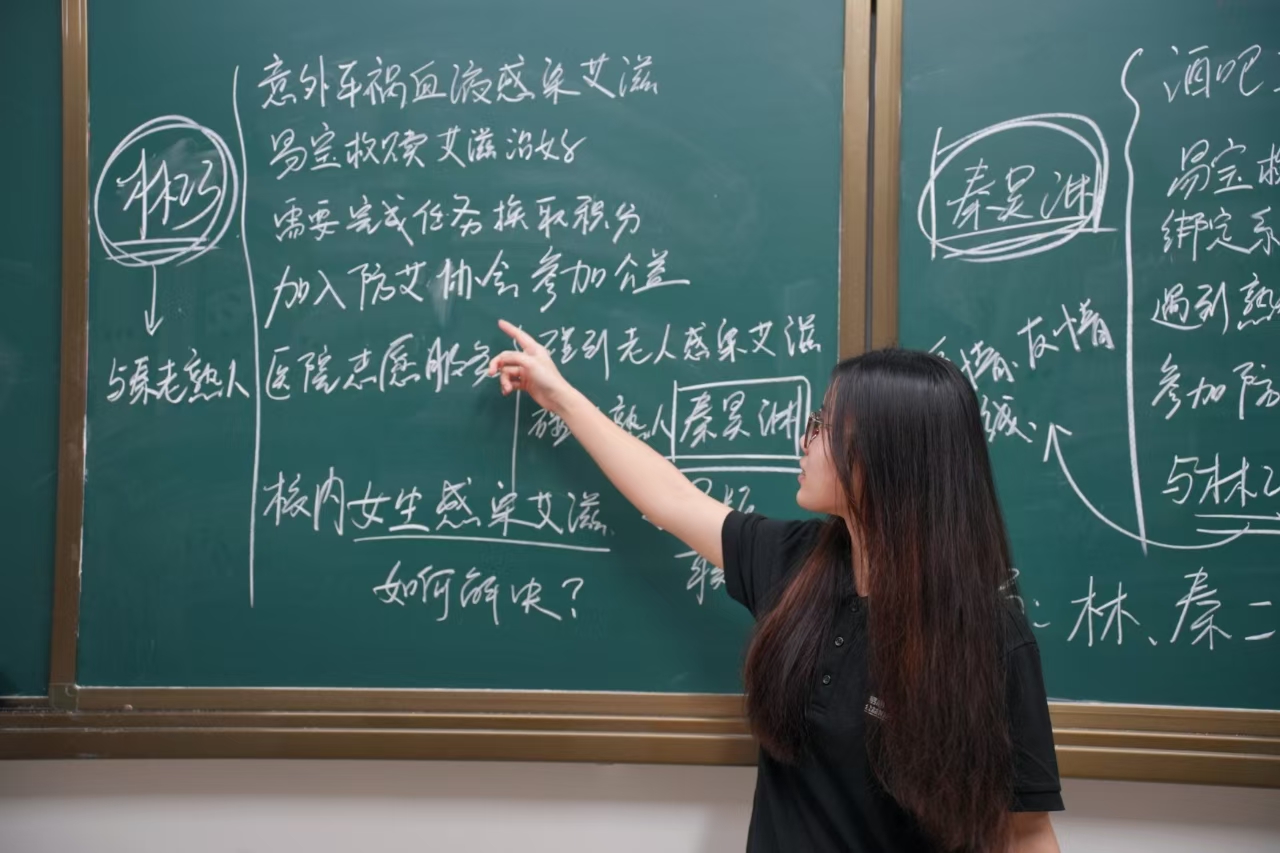 意外车祸血液感染艾滋
易宝救赎艾滋治好
需要完成任务换取积分
加入防艾协会参加公益
医院志愿服务
林巧
与秦老熟人
碰到老人感染艾滋
碰 熟人 秦昊淋
校内女生感染艾滋
如何解决?
酒吧
秦昊淋
易宝
绑定系
遇到熟
友情
参加防
与林
林、秦二